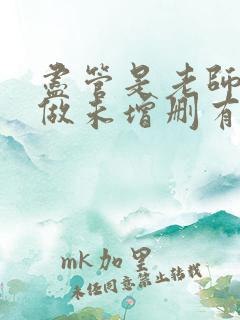 盡管是老師
做未增刪有
mk加里
未经同意禁止转载